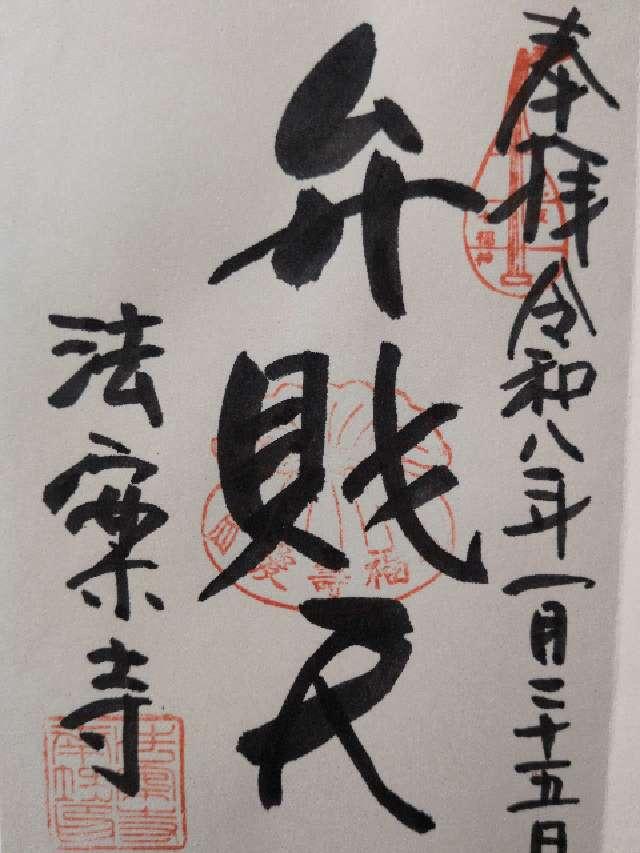 奉拝 令和八年一月二十五日
弁財天
法案寺